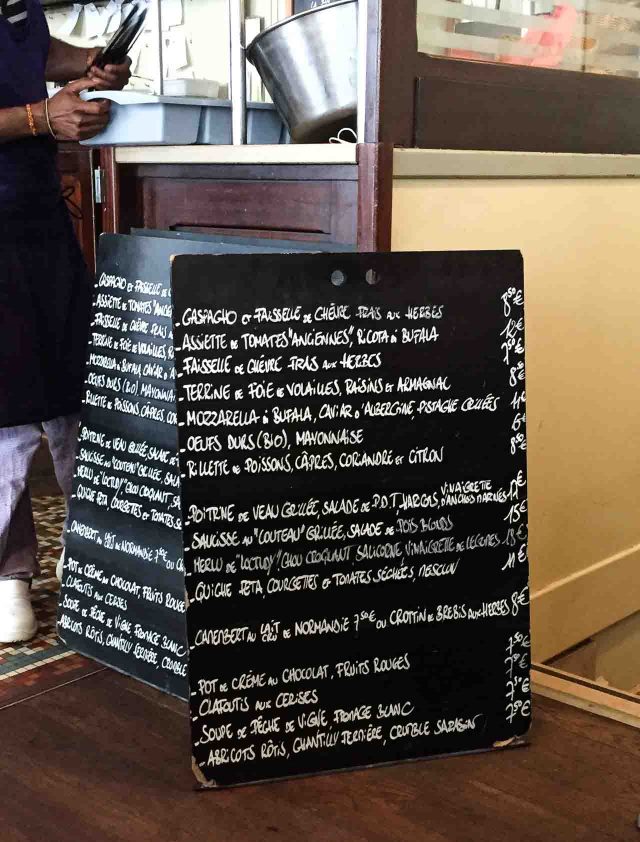 - GASPACHO ET FAISSELLE DE CHÈVRE FRAIS AUX HERBES 8,50€
- ASSIETTE DE TOMATES "ANCIENNES", RICOTA DI BUFALA
- FAISSELLE DE CHÈVRE FRAIS AUX HERBES 7,50€
- TERRINE DE FOIE DE VOLAILLES, RAISINS ET ARMAGNAC
- MOZZARELLA DI BUFALA, CAVIAR D'AUBERGINE, PISTACHE GRILLÉES
- OEUFS DURS (BIO), MAYONNAISE 6€
- RILLETTE DE POISSONS, CÂPRES, CORIANDRE ET CITRON
- POITRINE DE VEAU GRILLÉE, SALADE DE P.D.T, VINAIGRETTE D'ANCHOIS MARINÉS
- SAUCISSE AU "COUTEAU" GRILLÉE, SALADE DE POIS BLONDS 15€
- MERLU DE "LOCTUDY", CHOU CROQUANT, SALICORNE, VINAIGRETTE DE LÉGUMES
- QUICHE FETA, COURGETTES ET TOMATES SÉCHÉES, MESCLUN 11€
- CAMENBERT AU LAIT CRU DE NORMANDIE 7,50€ OU CROTTIN DE BREBIS AUX HERBES 8€
- POT DE CRÈME AU CHOCOLAT, FRUITS ROUGES 7,50€
- CLAFOUTIS AUX CERISES 7,50€
- SOUPE DE PÊCHE DE VIGNE, FROMAGE BLANC 7,50€
- ABRICOTS RÔTIS, CHANTILLY, CRUMBLE SARASIN 7,50€
- GASPACHO ET FAISSELLE DE
- ASSIETTE DE TOMATES
- FAISSELLE DE CHÈVRE FRAIS
- TERRINE DE FOIE DE VOLAILLES,
- MOZZARELLA DI BUFALA, CAVIAR
- OEUFS DURS (BIO), MAYONNA
- RILLETTE DE POISSONS, CÂPRES,
- POITRINE DE VEAU GRILLÉE, SALADE
- SAUCISSE AU "COUTEAU" GRILLÉE,
- MERLU DE "LOCTUDY", CHOU CROQUANT,
- QUICHE FETA, COURGETTES ET TOMATES
- CAMENBERT AU LAIT DE NORMANDIE 7,50€ OU
- POT DE CRÈME AU CHOCOLAT, FRUITS ROUGES
- CLAFOUTIS AUX CERISES
- SOUPE DE PÊCHE DE VIGNE, FROMAGE BLANC
- ABRICOTS RÔTIS, CHANTILLY